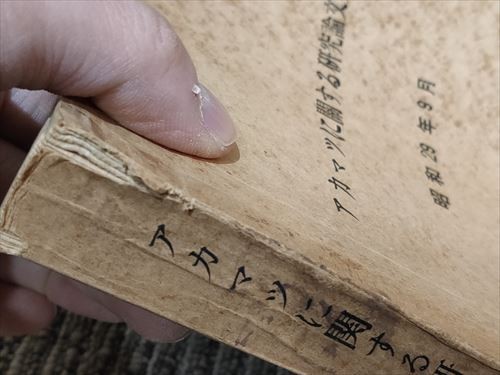 アカマツに関する研究論文
昭和29年9月
アカマツに関する